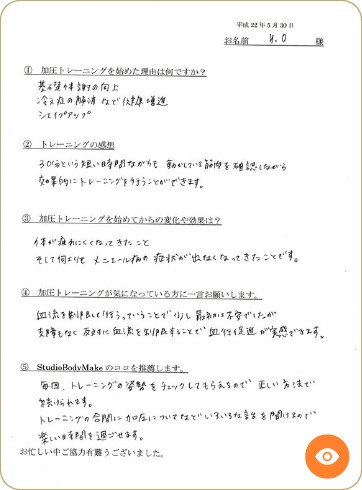 平成22年5月30日
お名前 Y.O 様
① 加圧トレーニングを始めた理由は何ですか？
基礎代謝の向上
冷え症の解消 など健康増進
シェイプアップ
② トレーニングの感想
30分という短い時間ながらも 動かしている筋肉を確認しながら
効果的にトレーニングを行うことができます。
③ 加圧トレーニングを始めてからの変化や効果は？
体が疲れにくくなってきたこと
そして何よりも メニエール病の 症状が出なくなってきたことです。
④ 加圧トレーニングが気になっている方に一言お願いします。
血流を制限して行うっていうことで少し最初は不安でしたが
支障もなく 反対に血流を制限することで 血行促進が実感できます。
⑤ StudioBodyMakeのココを推薦します。
毎回、トレーニングの姿勢をチェックしてもらえるので 正しい方法で
続けられます。
トレーニングの合間に加圧についてなど いろいろなお話を聞けるので
楽しい時間を過ごせます。
お忙しい中ご協力有難うございました。